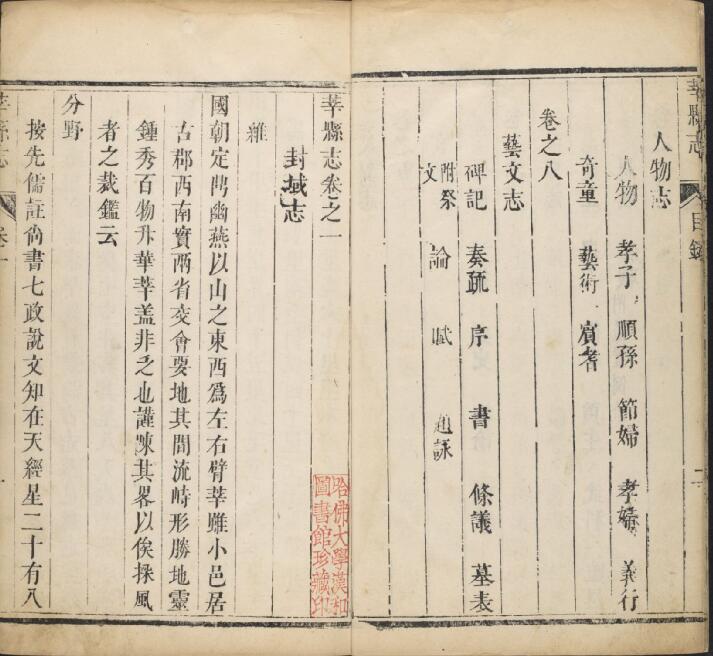 莘縣志 目錄 二
人物志
人物 孝子 順孫 節婦 孝婦 義行
奇童 藝術 賓耆
卷之八
藝文志
碑記 奏疏 序 書 條議 墓表
附祭文 論 賦 題詠
莘縣志卷之一
哈佛大學漢和
圖書館珍藏印
封域志
維
國朝定鼎幽燕以山之東西爲左右臂莘雖小邑居
古郡西南實兩省交會要地其間流峙形勝地靈
鍾秀百物升華莘盖非乏也謹陳其畧以俟採風
者之裁鑑云
分野
按先儒註尚書七政說文知在天經星二十有八
莘縣志 卷一 一